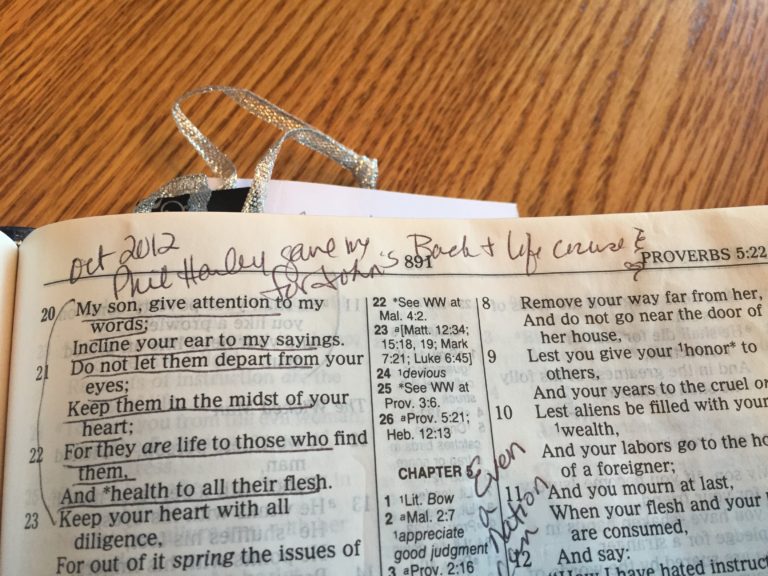 Oct 2012
Phil Henley gave me
for John's Back + life
891
PROVERBS 5:22
20 My son, give attention to my
words;
Incline your ear to my sayings.
21 Do not let them depart from your
eyes;
Keep them in the midst of your
heart;
22 For they are life to those who find
them,
And *health to all their flesh.
23 Keep your heart with all
diligence,
For out of it spring the issues of
22 *See WW at
Mal. 4:2.
23 a[Matt. 12:34;
15:18, 19; Mark
7:21; Luke 6:45]
24 1devious
25 *See WW at
Prov. 3:6.
26 aProv. 5:21;
Heb. 12:13
CHAPTER 5
1 1Lit. Bow
2 aMal. 2:7
1appreciate
good judgment
3 aProv. 2:16
a Even
8 Remove your way far from her,
And do not go near the door of
her house,
9 Lest you give your 1honor* to
others,
And your years to the cruel
10 Lest aliens be filled with your
1wealth,
And your labors go to the
of a foreigner;
11 And you mourn at last,
When your flesh and your
are consumed,
12 And say:
"How I have hated